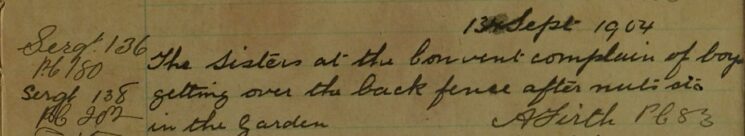 13 Sept 1904
Sergt. 136
PC 180
The Sisters at the Convent complain of boys
Sergt 138
getting over the back fence after nuts &c
PC 202
in the Garden A Firth PC 83